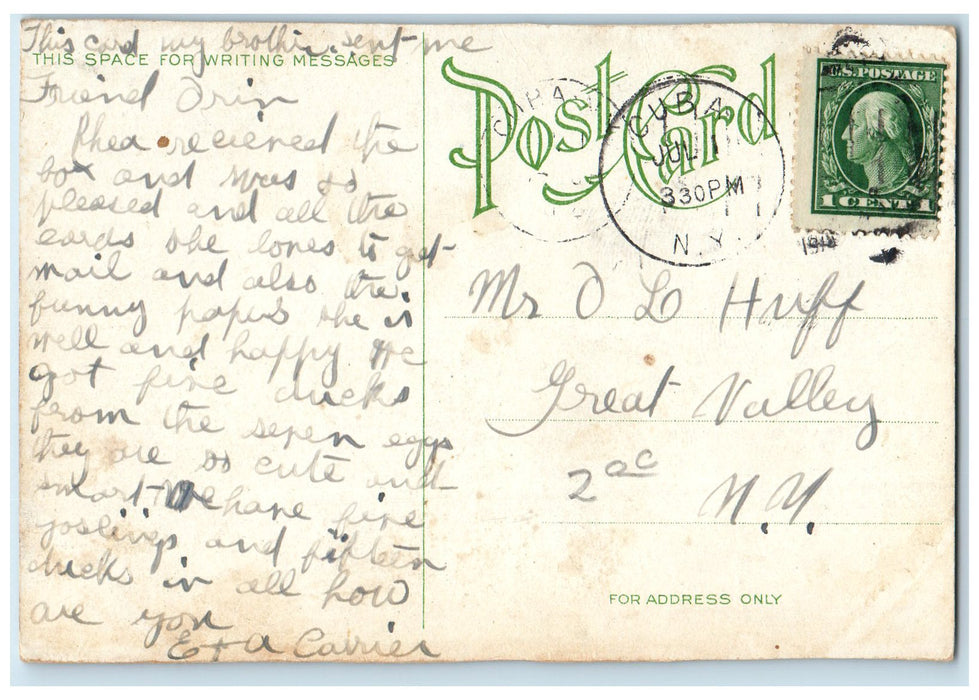 This card my brother sent me
THIS SPACE FOR WRITING MESSAGES
Friend Orin
Rhea recieved the
box and was so
pleased and all the
cards she loves to get
mail and also the
funny papers she is
well and happy We
got five ducks
from the seven eggs
they are so cute and
smart We have five
goslings and fifteen
ducks in all how
are you
Carrier
Post Card
CUBA
JUL 1
330PM
N.Y.
U.S. POSTAGE
1 CENT 1
Mr O L Huff
Great Valley
N.Y.
FOR ADDRESS ONLY